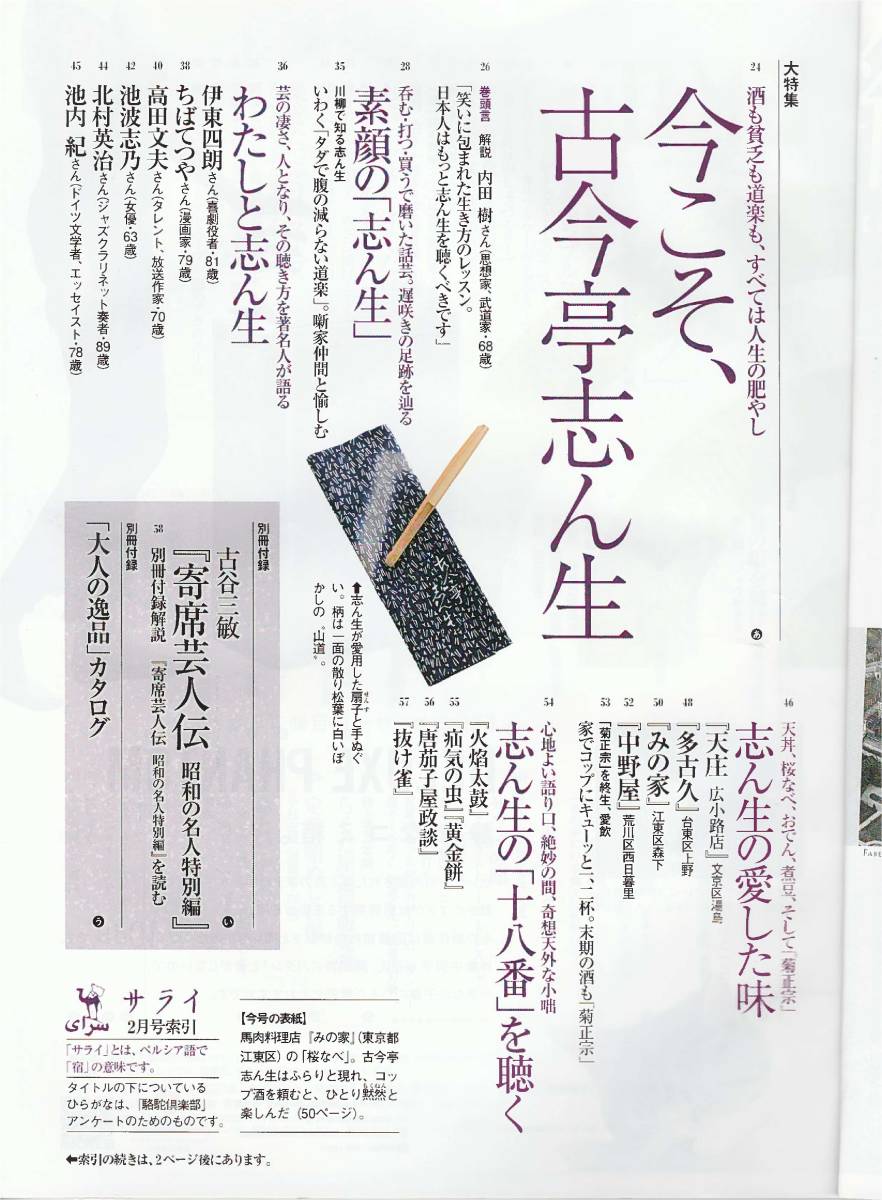 大特集
24 酒も貧乏も道楽も、すべては人生の肥やし
今こそ、
古今亭志ん生
あ
26 巻頭言 解説 内田 樹さん(思想家、武道家・68歳)
「笑いに包まれた生き方のレッスン。
日本人はもっと志ん生を聴くべきです」
28 呑む・打つ・買うで磨いた話芸。遅咲きの足跡を辿る
素顔の「志ん生」
35 川柳で知る志ん生
いわく「タダで腹の減らない道楽」。噺家仲間と愉しむ
36 芸の凄さ、人となり、その聴き方を著名人が語る
わたしと志ん生
伊東四朗さん(喜劇役者・81歳)
38 ちばてつやさん(漫画家・79歳)
40 高田文夫さん(タレント、放送作家・70歳)
42 池波志乃さん(女優・63歳)
44 北村英治さん(ジャズクラリネット奏者・89歳)
45 池内 紀さん(ドイツ文学者、エッセイスト・78歳)
古今亭
志ん生
⬆志ん生が愛用した扇子と手ぬぐ
せんす
い。柄は一面の散り松葉に白いぼ
かしの〝山道〟。
46 天丼、桜なべ、おでん、煮豆、そして「菊正宗」
志ん生の愛した味
『天庄 広小路店』文京区湯島
48 『多古久』台東区上野
50 『みの家』江東区森下
52 『中野屋』荒川区西日暮里
53 「菊正宗」を終生、愛飲
家でコップにキューッと一、二杯。末期の酒も「菊正宗」
54 心地よい語り口、絶妙の間、奇想天外な小咄
志ん生の「十八番」を聴く
『火焔太鼓』
55 『疝気の虫』『黄金餅』
56 『唐茄子屋政談』
57 『抜け雀』
別冊付録
古谷三敏
『寄席芸人伝 昭和の名人特別編』
い
58 別冊付録解説 『寄席芸人伝 昭和の名人特別編』を読む
別冊付録
「大人の逸品」カタログ
う
サライ
سرای
2月号索引
「サライ」とは、ペルシア語で
「宿」の意味です。
タイトルの下についている
ひらがなは、「駱駝倶楽部」
アンケートのためのものです。
【今号の表紙】
馬肉料理店『みの家』(東京都
江東区)の「桜なべ」。古今亭
志ん生はふらりと現れ、コッ
プ酒を頼むと、ひとり黙然と
もくねん
楽しんだ(50ページ)。
⬅索引の続きは、2ページ後にあります。